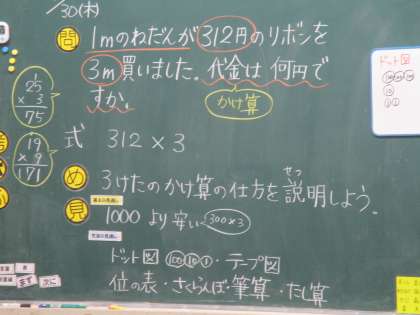 /30(木)
問 1mのねだんが312円のリボンを
3m買いました。代金は何円で
すか。
かけ算
25
× 3
75
19
× 9
171
式 312×3
め 3けたのかけ算の仕方を説明しよう。
せつ
見 1000より安い 300×3
ドット図 100 10 1 ・テープ図
位の表・さくらんぼ・筆算・たし算
ドット図
100 100 100
10
1 1
まず 次に